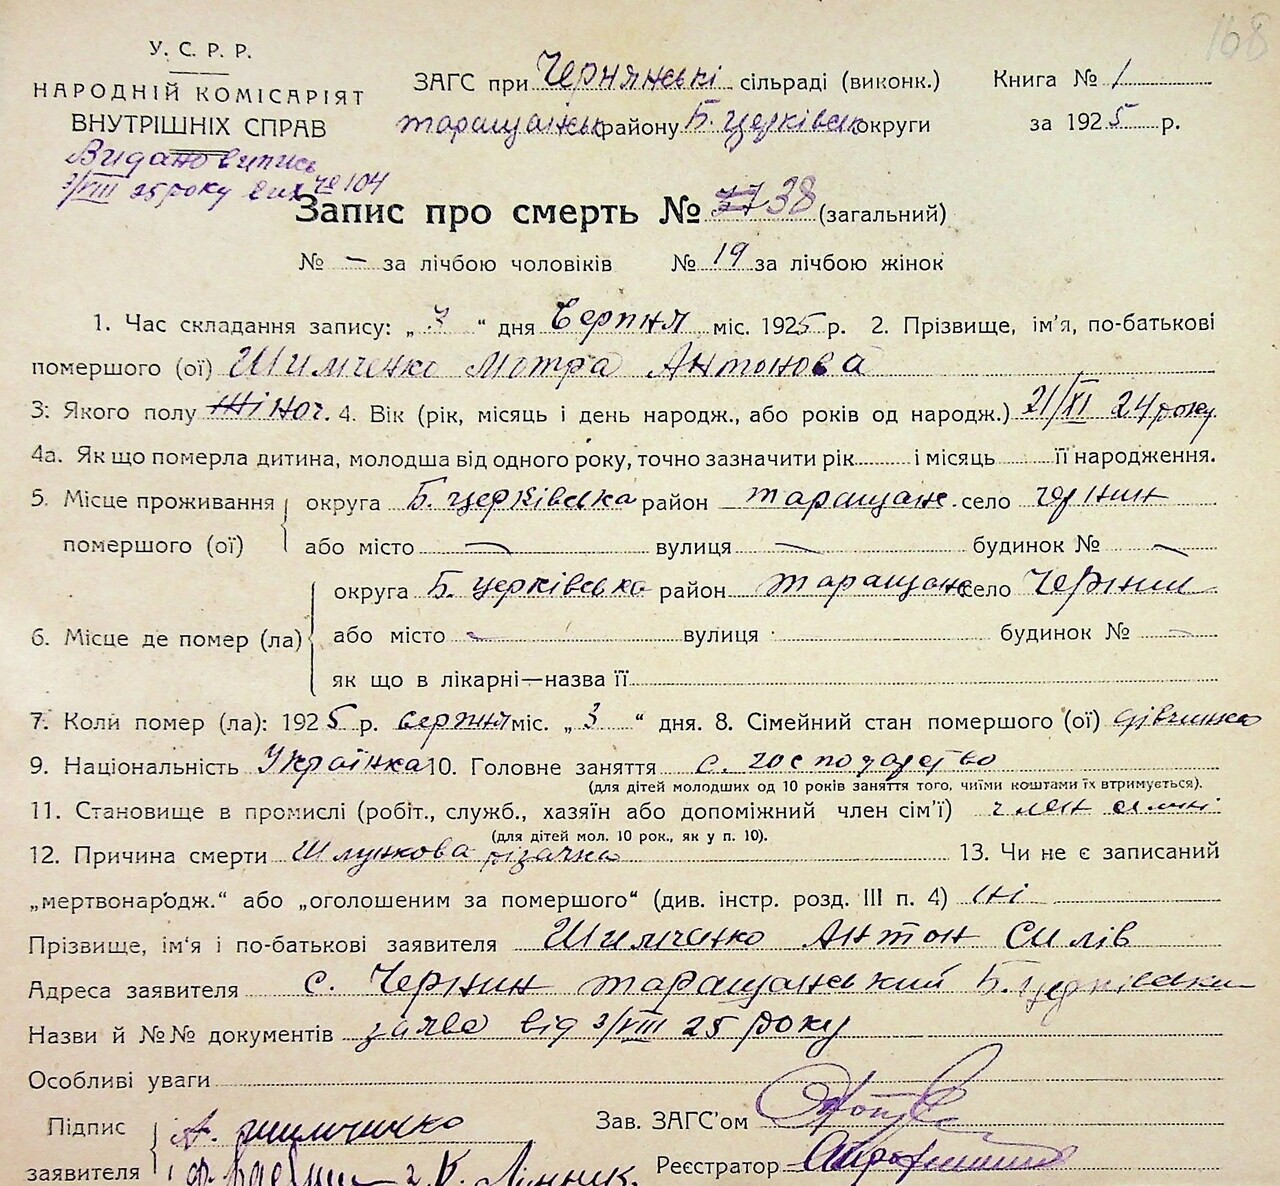 168
У. С. Р. Р.
НАРОДНІЙ КОМІСАРІЯТ
ВНУТРІШНІХ СПРАВ
ЗАГС при Чернянські сільраді (виконк.)
Книга № 1
таращанськ району Б. церківськ округи
за 1925 р.
Видано випись
3/VIII 25 року вих № 104
Запис про смерть № 38 (загальний)
№ — за лічбою чоловіків № 19 за лічбою жінок
1. Час складання запису: „ 3 “ дня Серпня міс. 1925 р. 2. Прізвище, ім’я, по-батькові
помершого (ої) Шимченко Мотра Антонова
3: Якого полу жіноч. 4. Вік (рік, місяць і день народж., або років од народж.) 21/XI 24 року
4а. Як що померла дитина, молодша від одного року, точно зазначити рік і місяць її народження.
5. Місце проживання округа Б. церківська район таращан. село Чернин
помершого (ої) або місто — вулиця — будинок № —
округа Б. церківська район таращанс село Чернин
6. Місце де помер (ла) або місто - вулиця будинок № —
як що в лікарні—назва її
7. Коли помер (ла): 1925 р. серпня міс. „ 3 “ дня. 8. Сімейний стан помершого (ої) дівчинка
9. Національність Українка 10. Головне заняття с. господарство
(для дітей молодших од 10 років заняття того, чиїми коштами їх втримується).
11. Становище в промислі (робіт., служб., хазяїн або допоміжний член сім’ї) член семні
(для дітей мол. 10 рок., як у п. 10).
12. Причина смерти Шлункова різачка 13. Чи не є записаний
„мертвонародж.“ або „оголошеним за помершого“ (див. інстр. розд. III п. 4) ні
Прізвище, ім’я і по-батькові заявителя Шимченко Антон Силів
Адреса заявителя с. Чернин таращанський Б. церківськи
Назви й №№ документів заява від 3/VIII 25 року
Особливі уваги
Підпис А. Шимченко
Зав. ЗАГС’ом
заявителя К. Лінник.
Реєстратор